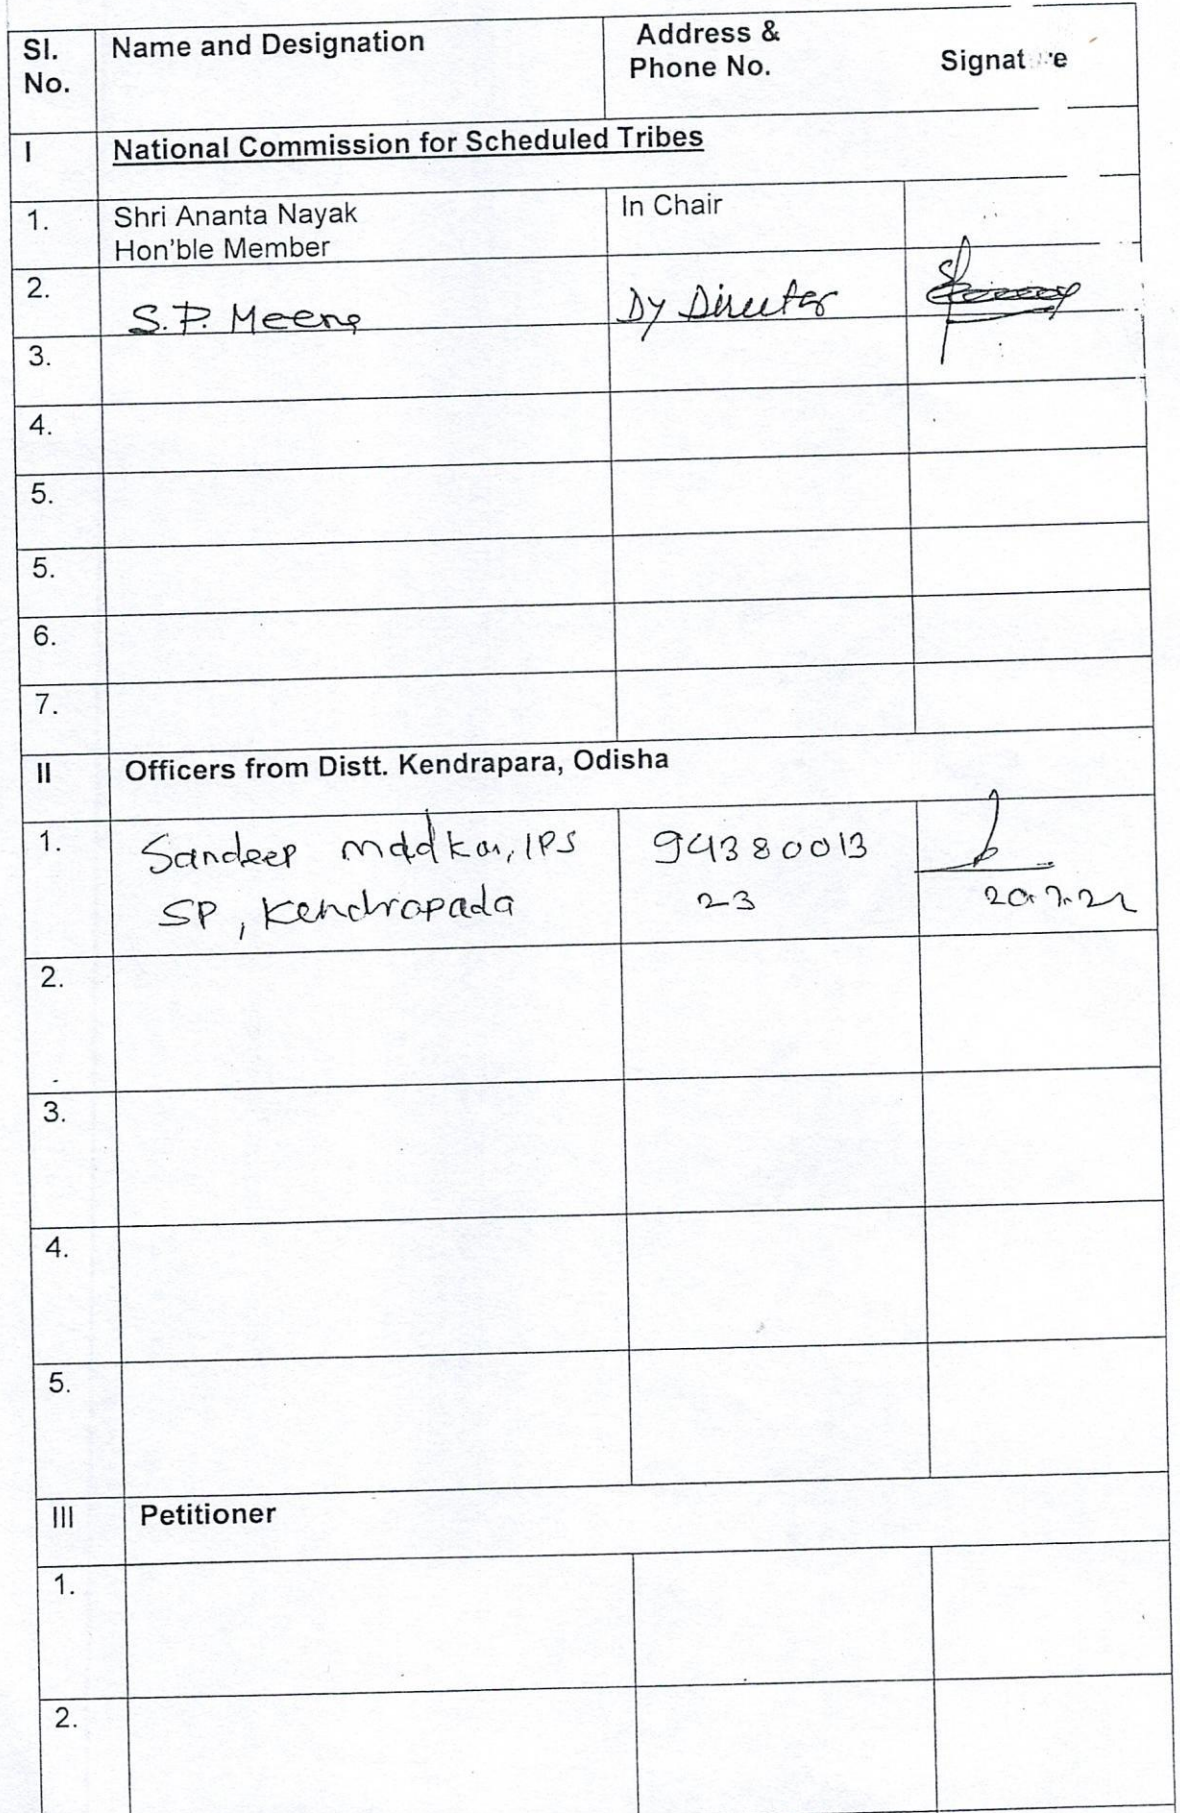 Sl. No.
Name and Designation
Address & Phone No.
Signature
I
National Commission for Scheduled Tribes
1.
Shri Ananta Nayak
Hon'ble Member
In Chair
2.
S.P. Meena
Dy Director
3.
4.
5.
5.
6.
7.
II
Officers from Distt. Kendrapara, Odisha
1.
Sandeep Madkar, IPS
SP, Kendrapada
94380013
23
20.7.22
2.
3.
4.
5.
III
Petitioner
1.
2.